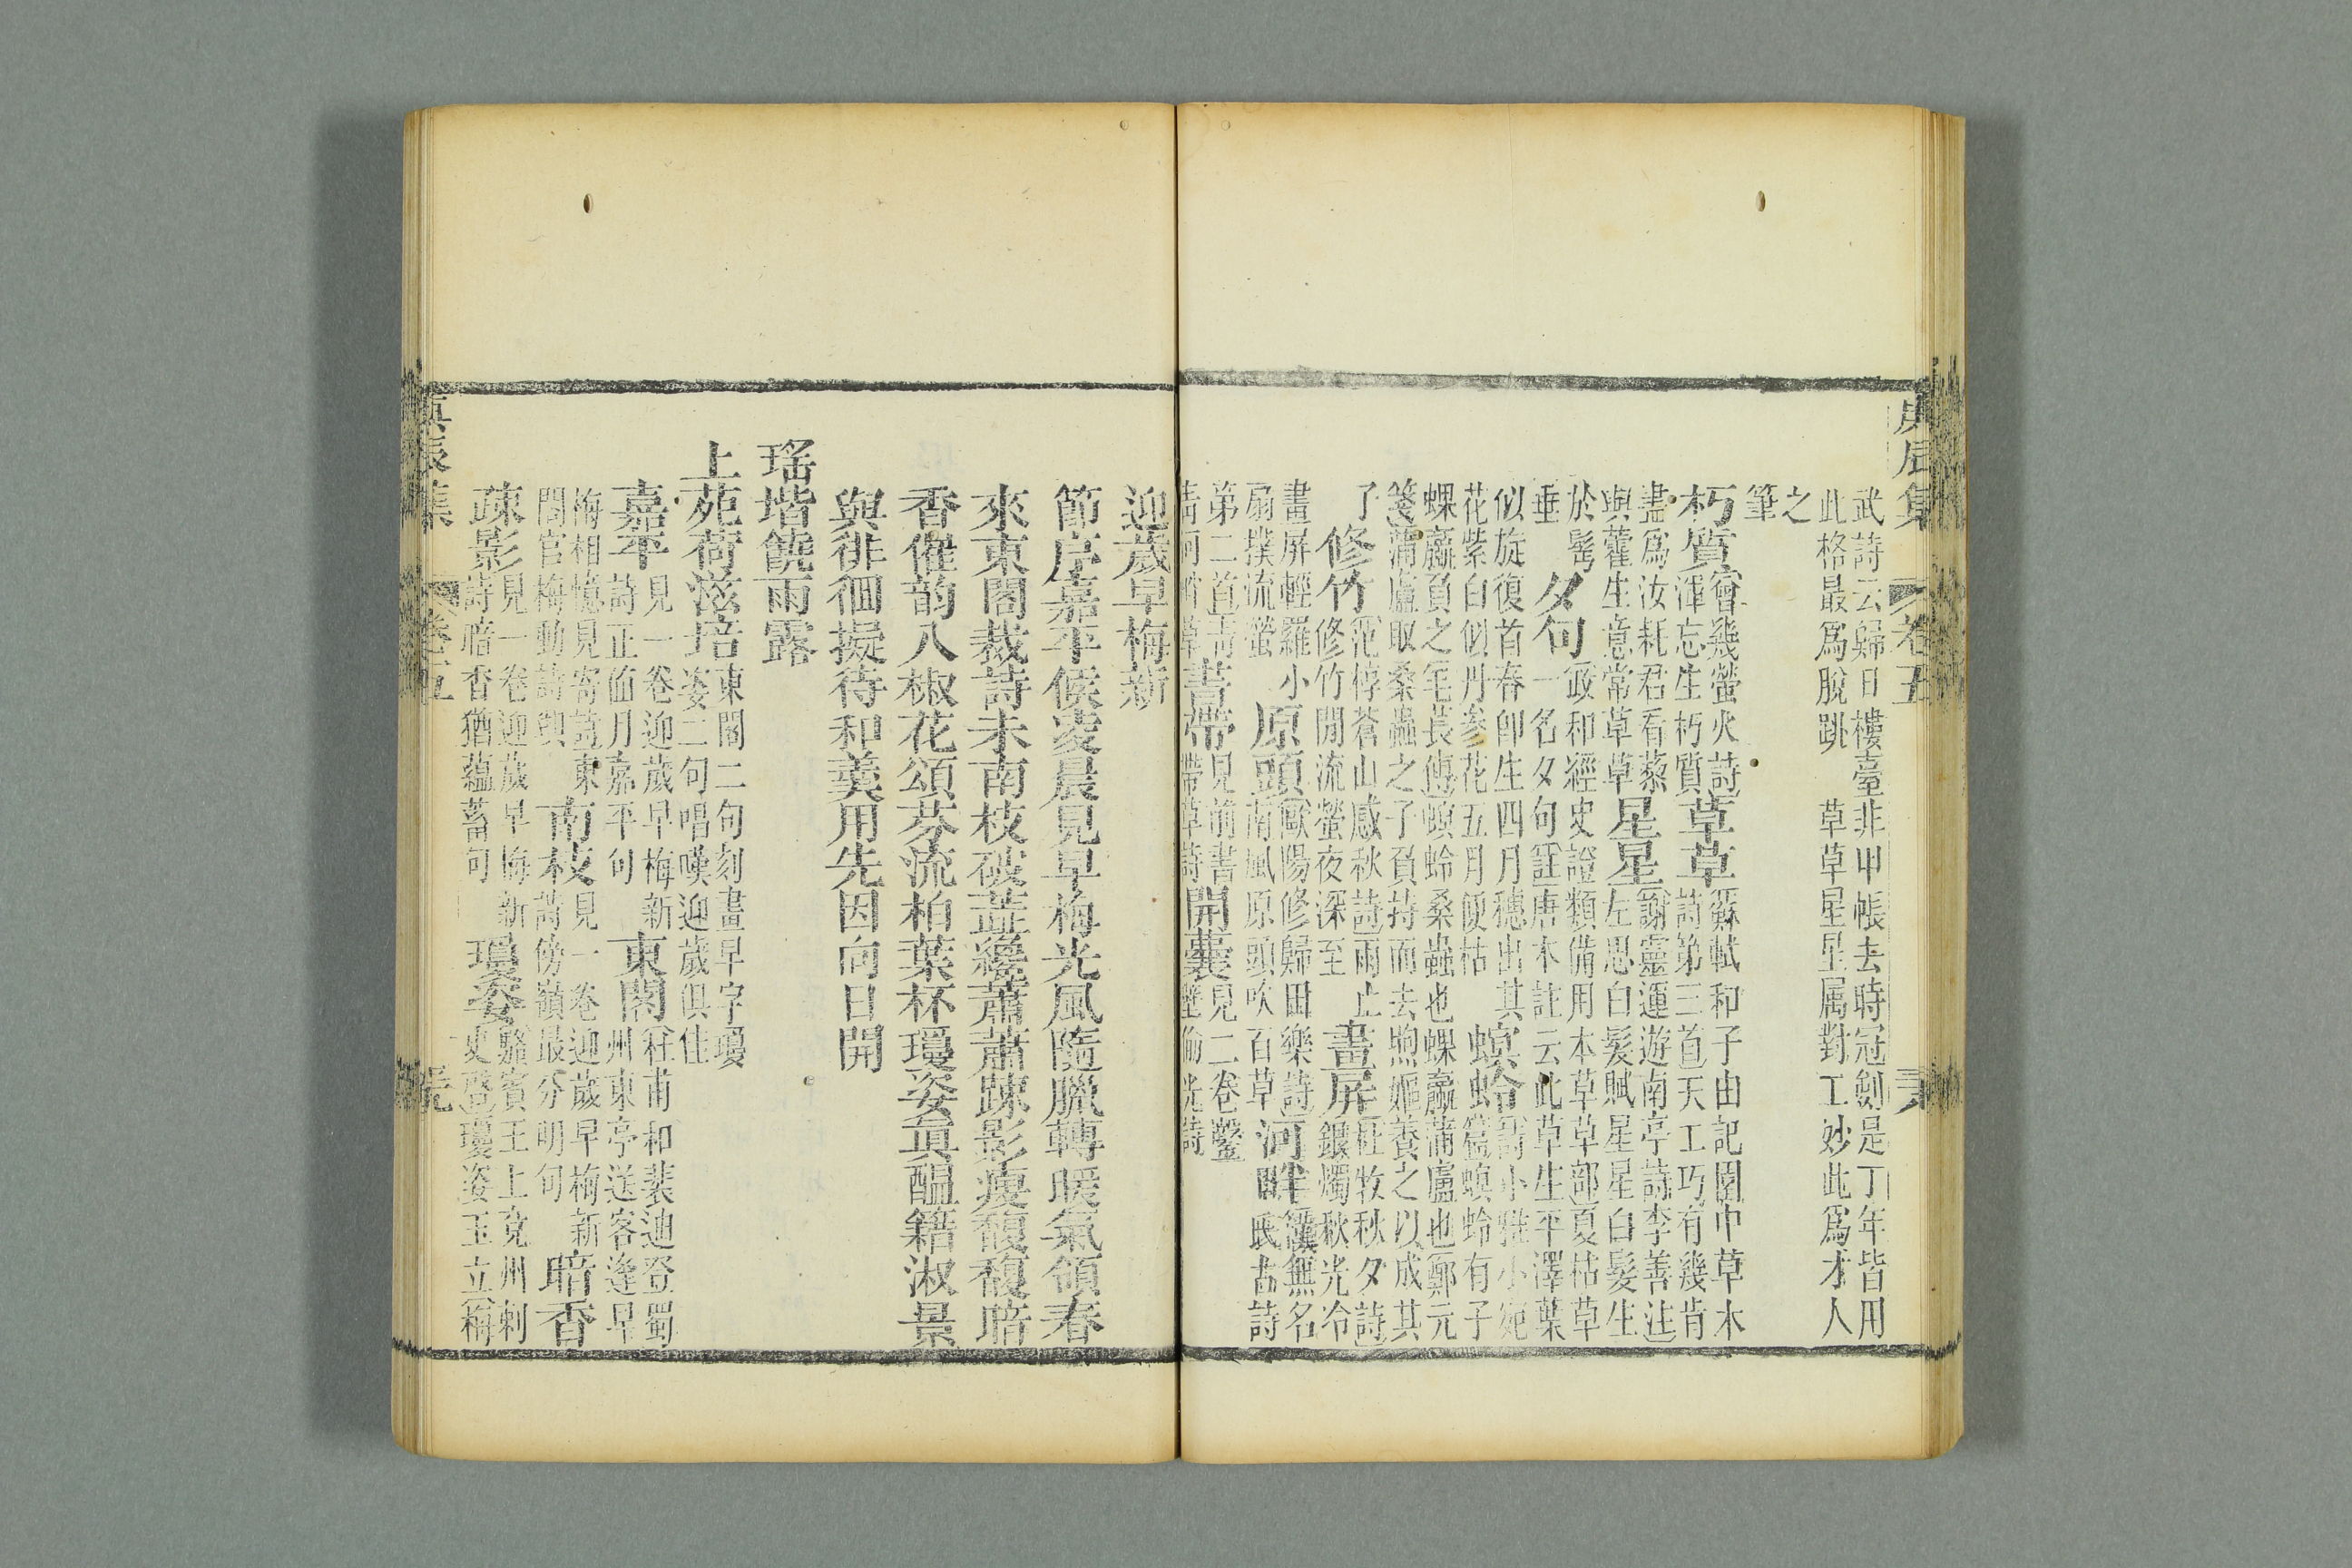 庚辰集 卷五
武詩云歸日樓臺非甲帳去時冠劍是丁年皆用
此格最爲脫跳　草草星星属對工妙此爲才人
之
筆
朽質 曾幾螢火詩 草草 蘇軾和子由記園中草木
渾忘生朽質 詩第三首天工巧有幾肯
盡爲汝耗君看藜 星星 謝靈運遊南亭詩李善注
與藿生意常草草 左思白髮賦星星白髮生
於髩 夂句 政和經史證類備用本草草部夏枯草
垂 一名夂句註唐本註云此草生平澤葉
似旋復首春卽生四月穗出其 螟蛉 詩小雅小宛
花紫白似丹参花五月便枯 篇螟蛉有子
蜾蠃負之毛萇傳螟蛉桑蟲也蜾蠃蒲盧也鄭元
箋蒲盧取桑蟲之子負持而去煦嫗養之以成其
了 修竹 范梈蒼山感秋詩雨止 畫屏 杜牧秋夕詩
修竹閒流螢夜深至 銀燭秋光冷
畫屏輕羅小 原頭 歐陽修歸田樂詩 河畔 漢無名
扇撲流螢 南風原頭吹百草 氏古詩
第二首靑 書帶 見前書 開囊 見二卷鑿
陵河畔草 帶草詩 壁偷光詩
迎歲早梅新
節序嘉平候凌晨見早梅光風隨臘轉暖氣領春
來東閣裁詩未南枝破蕋纔蕭蕭疎影瘦馥馥暗
香催韵八椒花頌芬流柏葉杯瓊姿眞醖籍淑景
與徘徊擬待和羹用先因向日開
瑤堦饒雨露
上苑荷滋培 東閣二句刻畫早字瓊
姿二句唱嘆迎歲俱佳
嘉平 見一卷迎歲早梅新 東閣 杜甫和裴迪登蜀
詩正値月嘉平句 州東亭送客逢早
梅相憶見寄詩東 南枝 見一卷迎歲早梅新 暗香
閣官梅動詩興 詩傍嶺最分明句
疎影 見一卷迎歲早梅新 瓊姿 駱賓王上兗州刺
詩暗香猶蘊蓄句 史啓瓊姿玉立稱
庚辰集 卷五